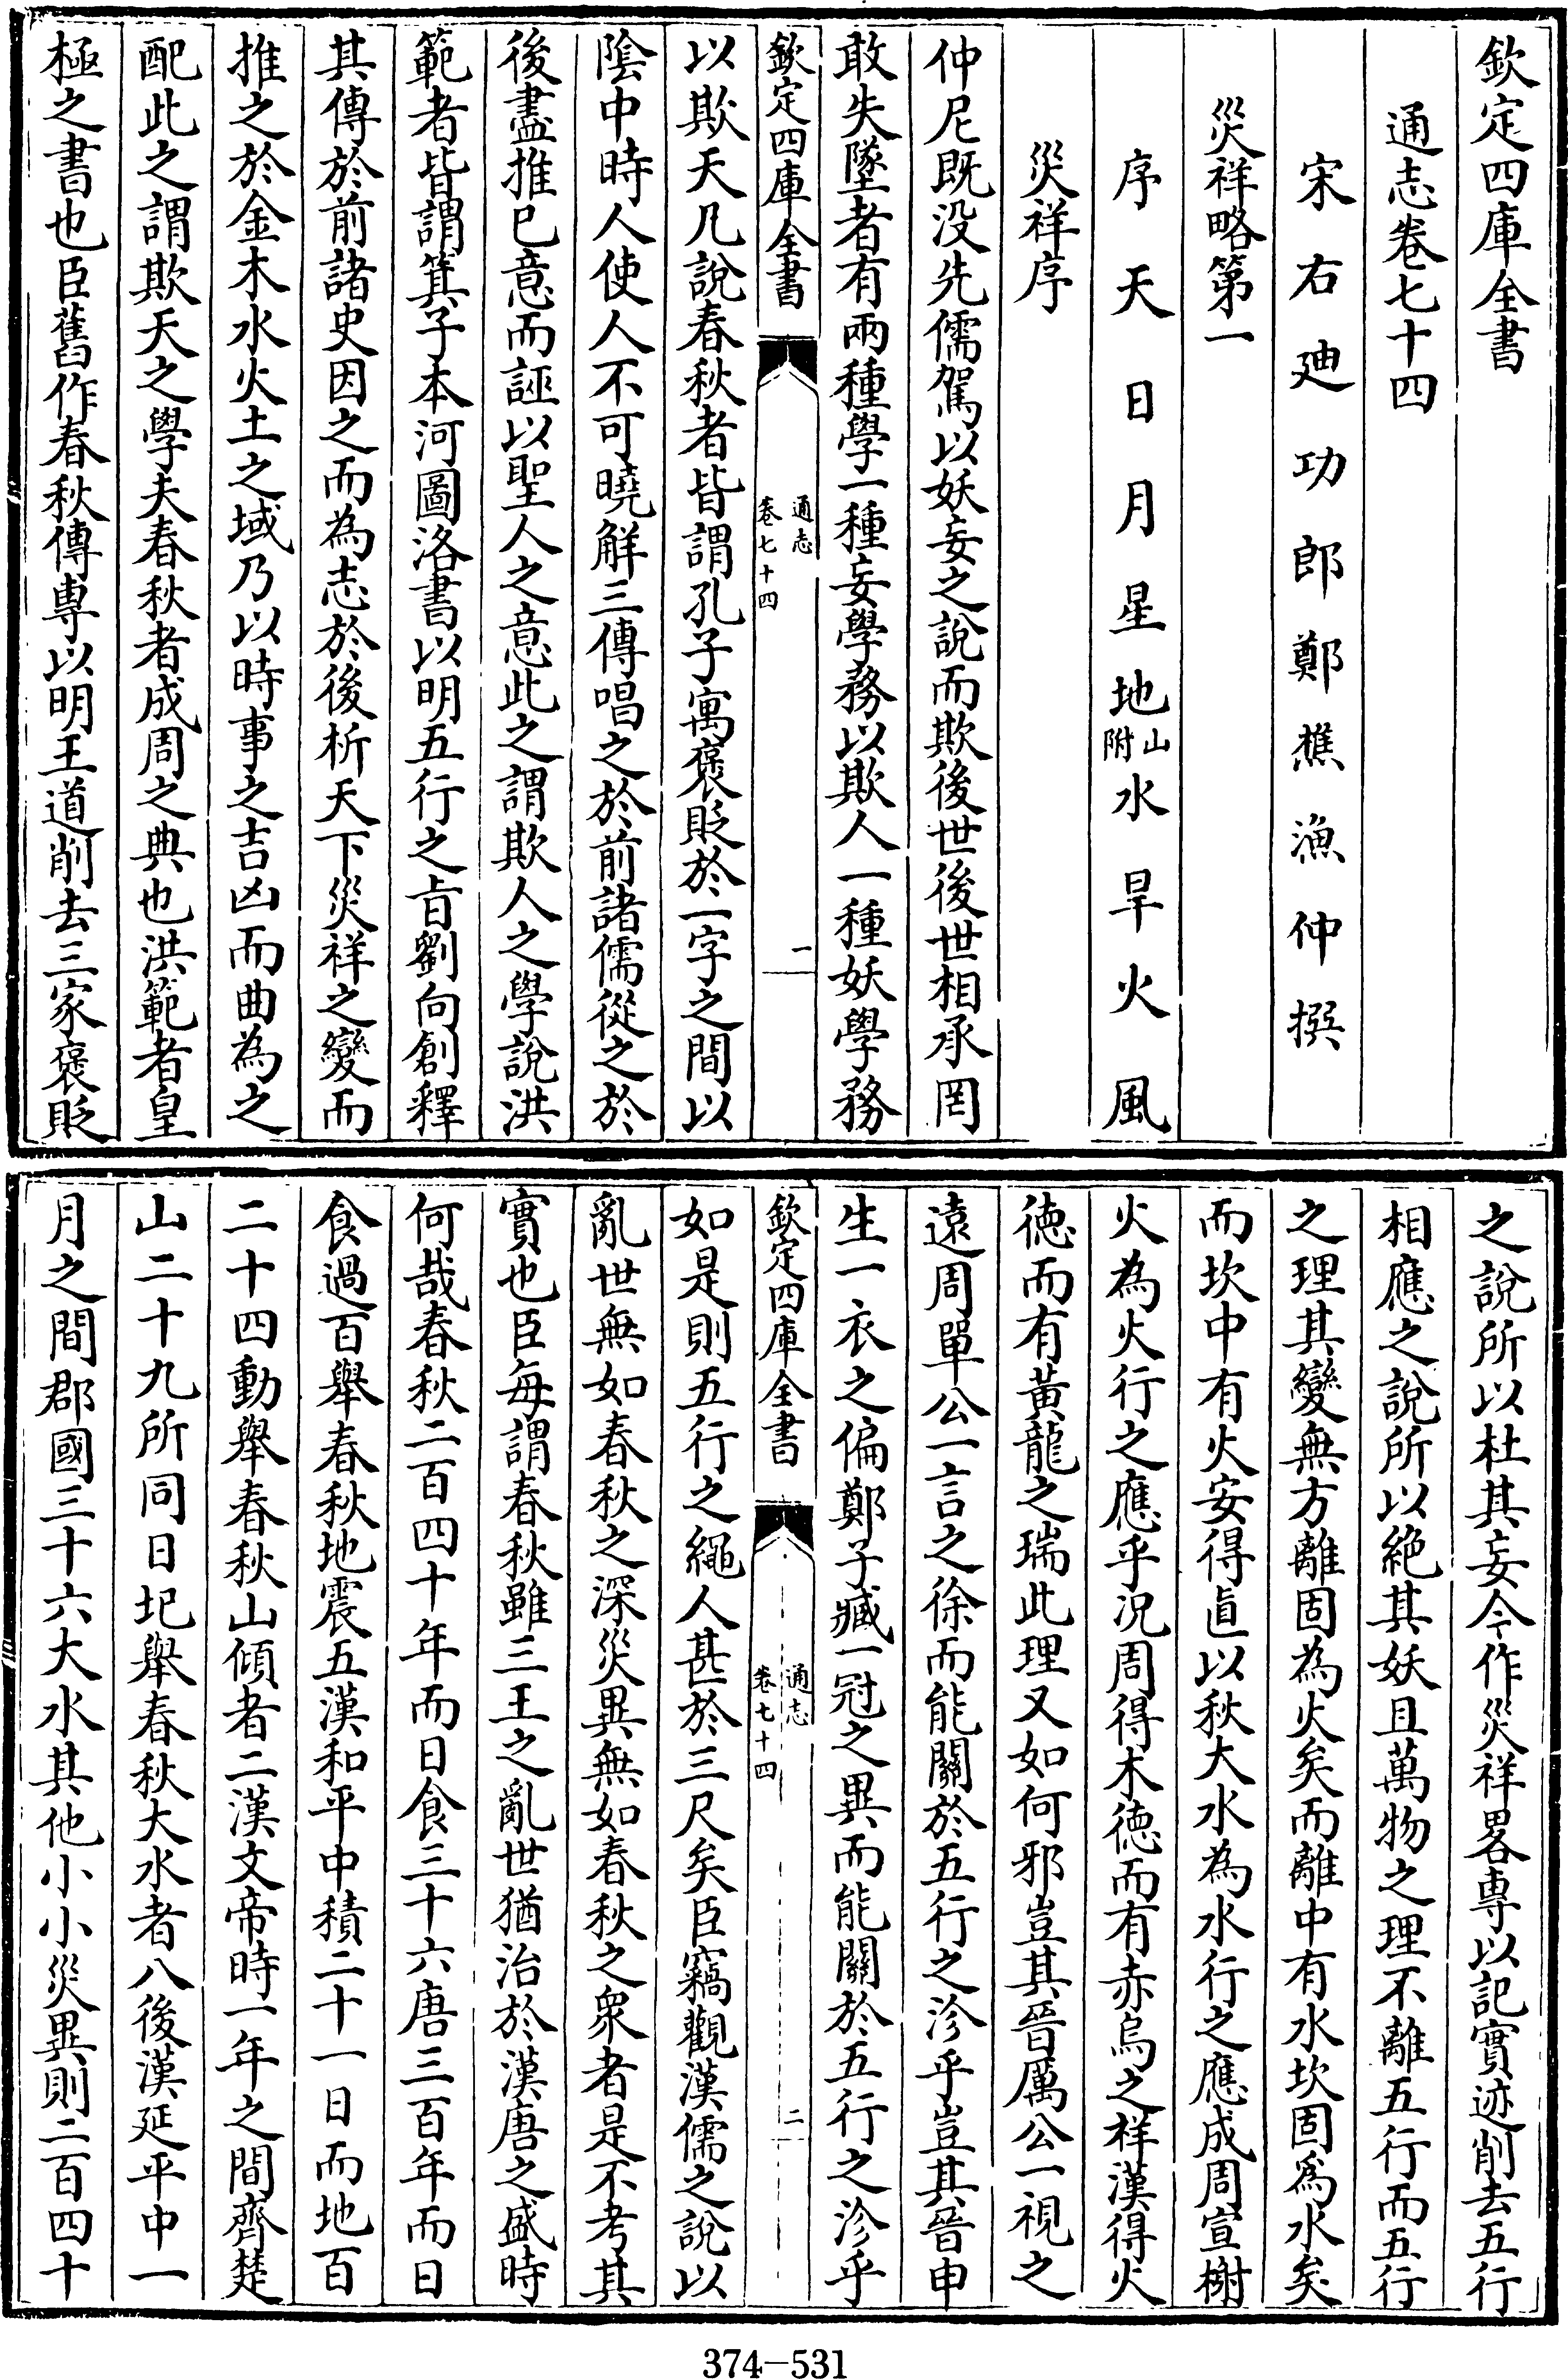 欽定四庫全書
通志卷七十四
宋右廸功郎鄭樵漁仲撰
災祥略第一
序天日月星地山附水旱火風
災祥序
仲尼既没先儒駕以妖妄之說而欺後世後世相承罔
敢失墜者有兩種學一種妄學務以欺人一種妖學務
欽定四庫全書
通志
卷七十四
一
以欺天凡說春秋者皆謂孔子寓褒貶於一字之間以
陰中時人使人不可曉解三傳唱之於前諸儒從之於
後盡推已意而誣以聖人之意此之謂欺人之學說洪
範者皆謂箕子本河圖洛書以明五行之㫖劉向創釋
其傳於前諸史因之而為志於後析天下災祥之變而
推之於金木水火土之域乃以時事之吉凶而曲為之
配此之謂欺天之學夫春秋者成周之典也洪範者皇
極之書也臣舊作春秋傳專以明王道削去三家褒貶
之說所以杜其妄今作災祥畧專以記實迹削去五行
相應之說所以絶其妖且萬物之理不離五行而五行
之理其變無方離固為火矣而離中有水坎固爲水矣
而坎中有火安得直以秋大水為水行之應成周宣榭
火為火行之應乎況周得木徳而有赤烏之祥漢得火
徳而有黃龍之瑞此理又如何邪豈其晉厲公一視之
遠周單公一言之徐而能關於五行之沴乎豈其晉申
生一衣之偏鄭子臧一冠之異而能關於五行之沴乎
欽定四庫全書
通志
卷七十四
二
如是則五行之繩人甚於三尺矣臣竊觀漢儒之說以
亂世無如春秋之深災異無如春秋之衆者是不考其
實也臣每謂春秋雖三王之亂世猶治於漢唐之盛時
何哉春秋二百四十年而日食三十六唐三百年而日
食過百舉春秋地震五漢和平中積二十一日而地百
二十四動舉春秋山傾者二漢文帝時一年之間齊楚
山二十九所同日圮舉春秋大水者八後漢延平中一
月之間郡國三十六大水其他小小災異則二百四十
374-531